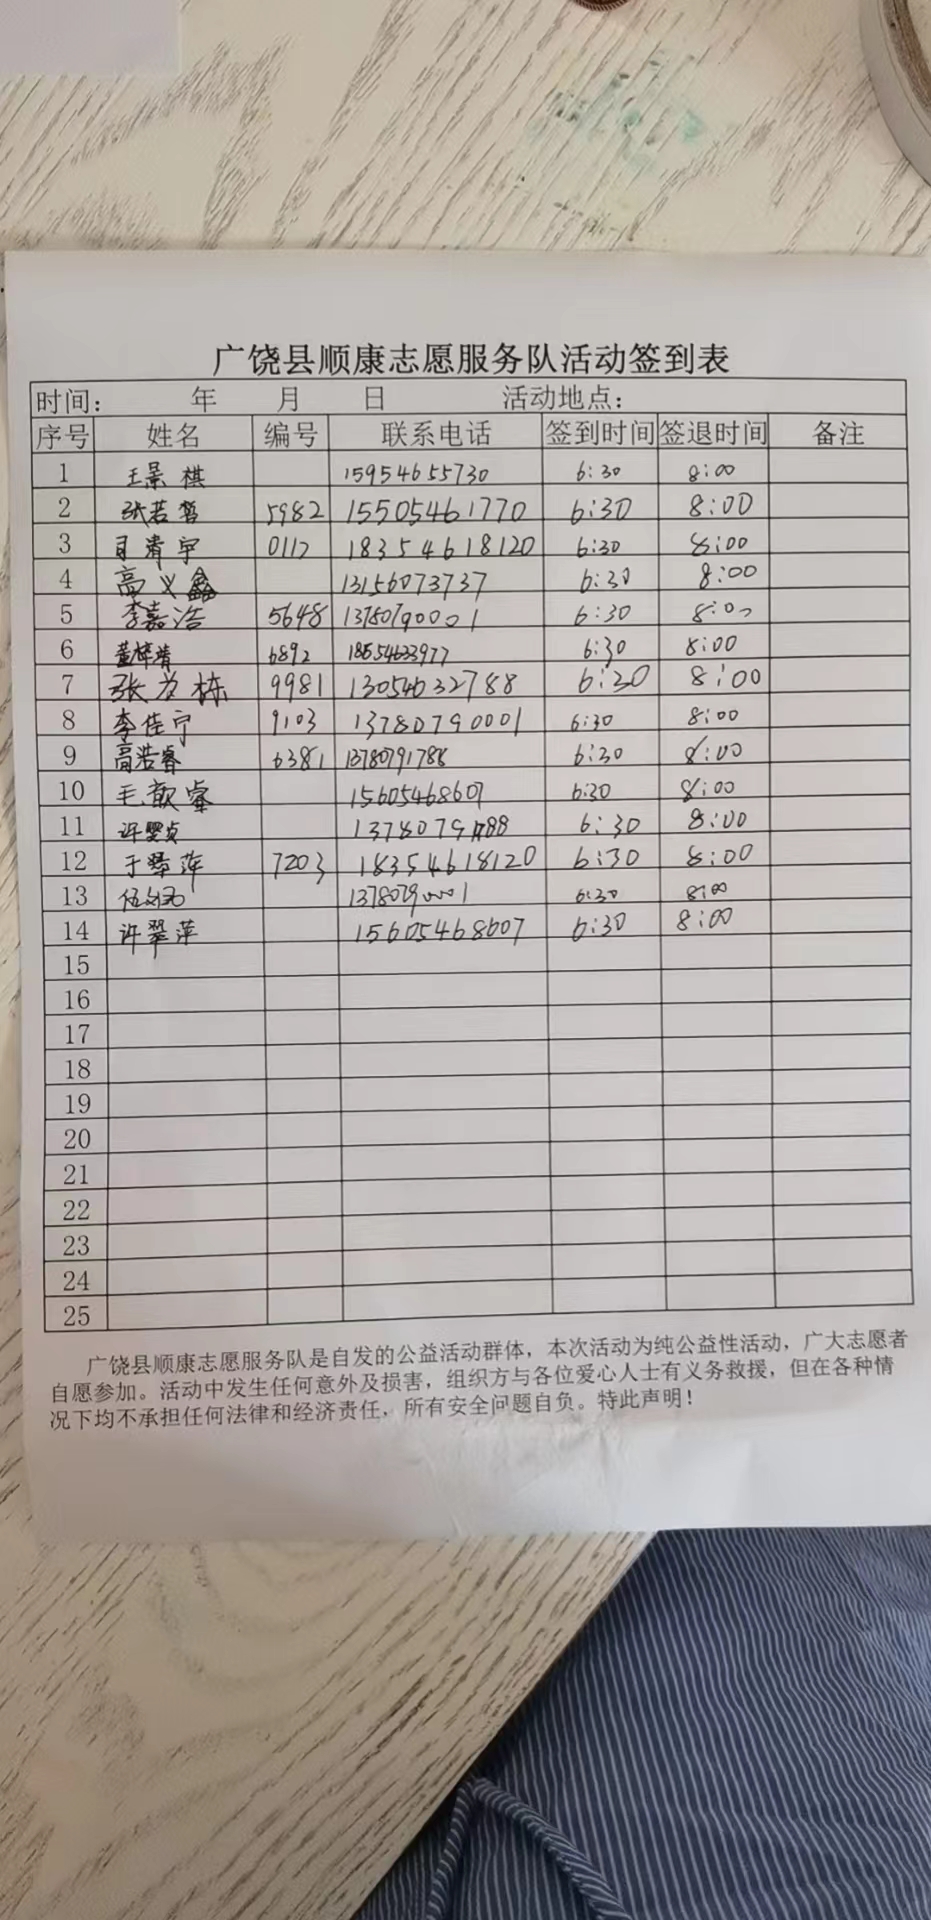 广饶县顺康志愿服务队活动签到表
时间： 年 月 日 活动地点：
序号 姓名 编号 联系电话 签到时间 签退时间 备注
1 王景棋 15954655730 6:30 8:00
2 张若哲 5982 15505461770 6:30 8:00
3 清宇 18354618120 6:30 8:00
4 高义鑫 13156073737 6:30 8:00
5 李嘉浩 5648 13780790001 6:30 8:00
6 6892 18554633977 6:30 8:00
7 张为栋 9981 13054632788 6:30 8:00
8 李佳宁 9103 13780790001 6:30 8:00
9 高浩睿 6381 13780791788 6:30 8:00
10 毛歆睿 15605468607 6:30 8:00
11 许 6:30 8:00
12 于翠萍 7203 18354618120 6:30 8:00
13 13780790001 6:30 8:00
14 许翠萍 15605468607 6:30 8:00
15
16
17
18
19
20
21
22
23
24
25
广饶县顺康志愿服务队是自发的公益活动群体，本次活动为纯公益性活动，广大志愿者
自愿参加。活动中发生任何意外及损害，组织方与各位爱心人士有义务救援，但在各种情
况下均不承担任何法律和经济责任，所有安全问题自负。特此声明！